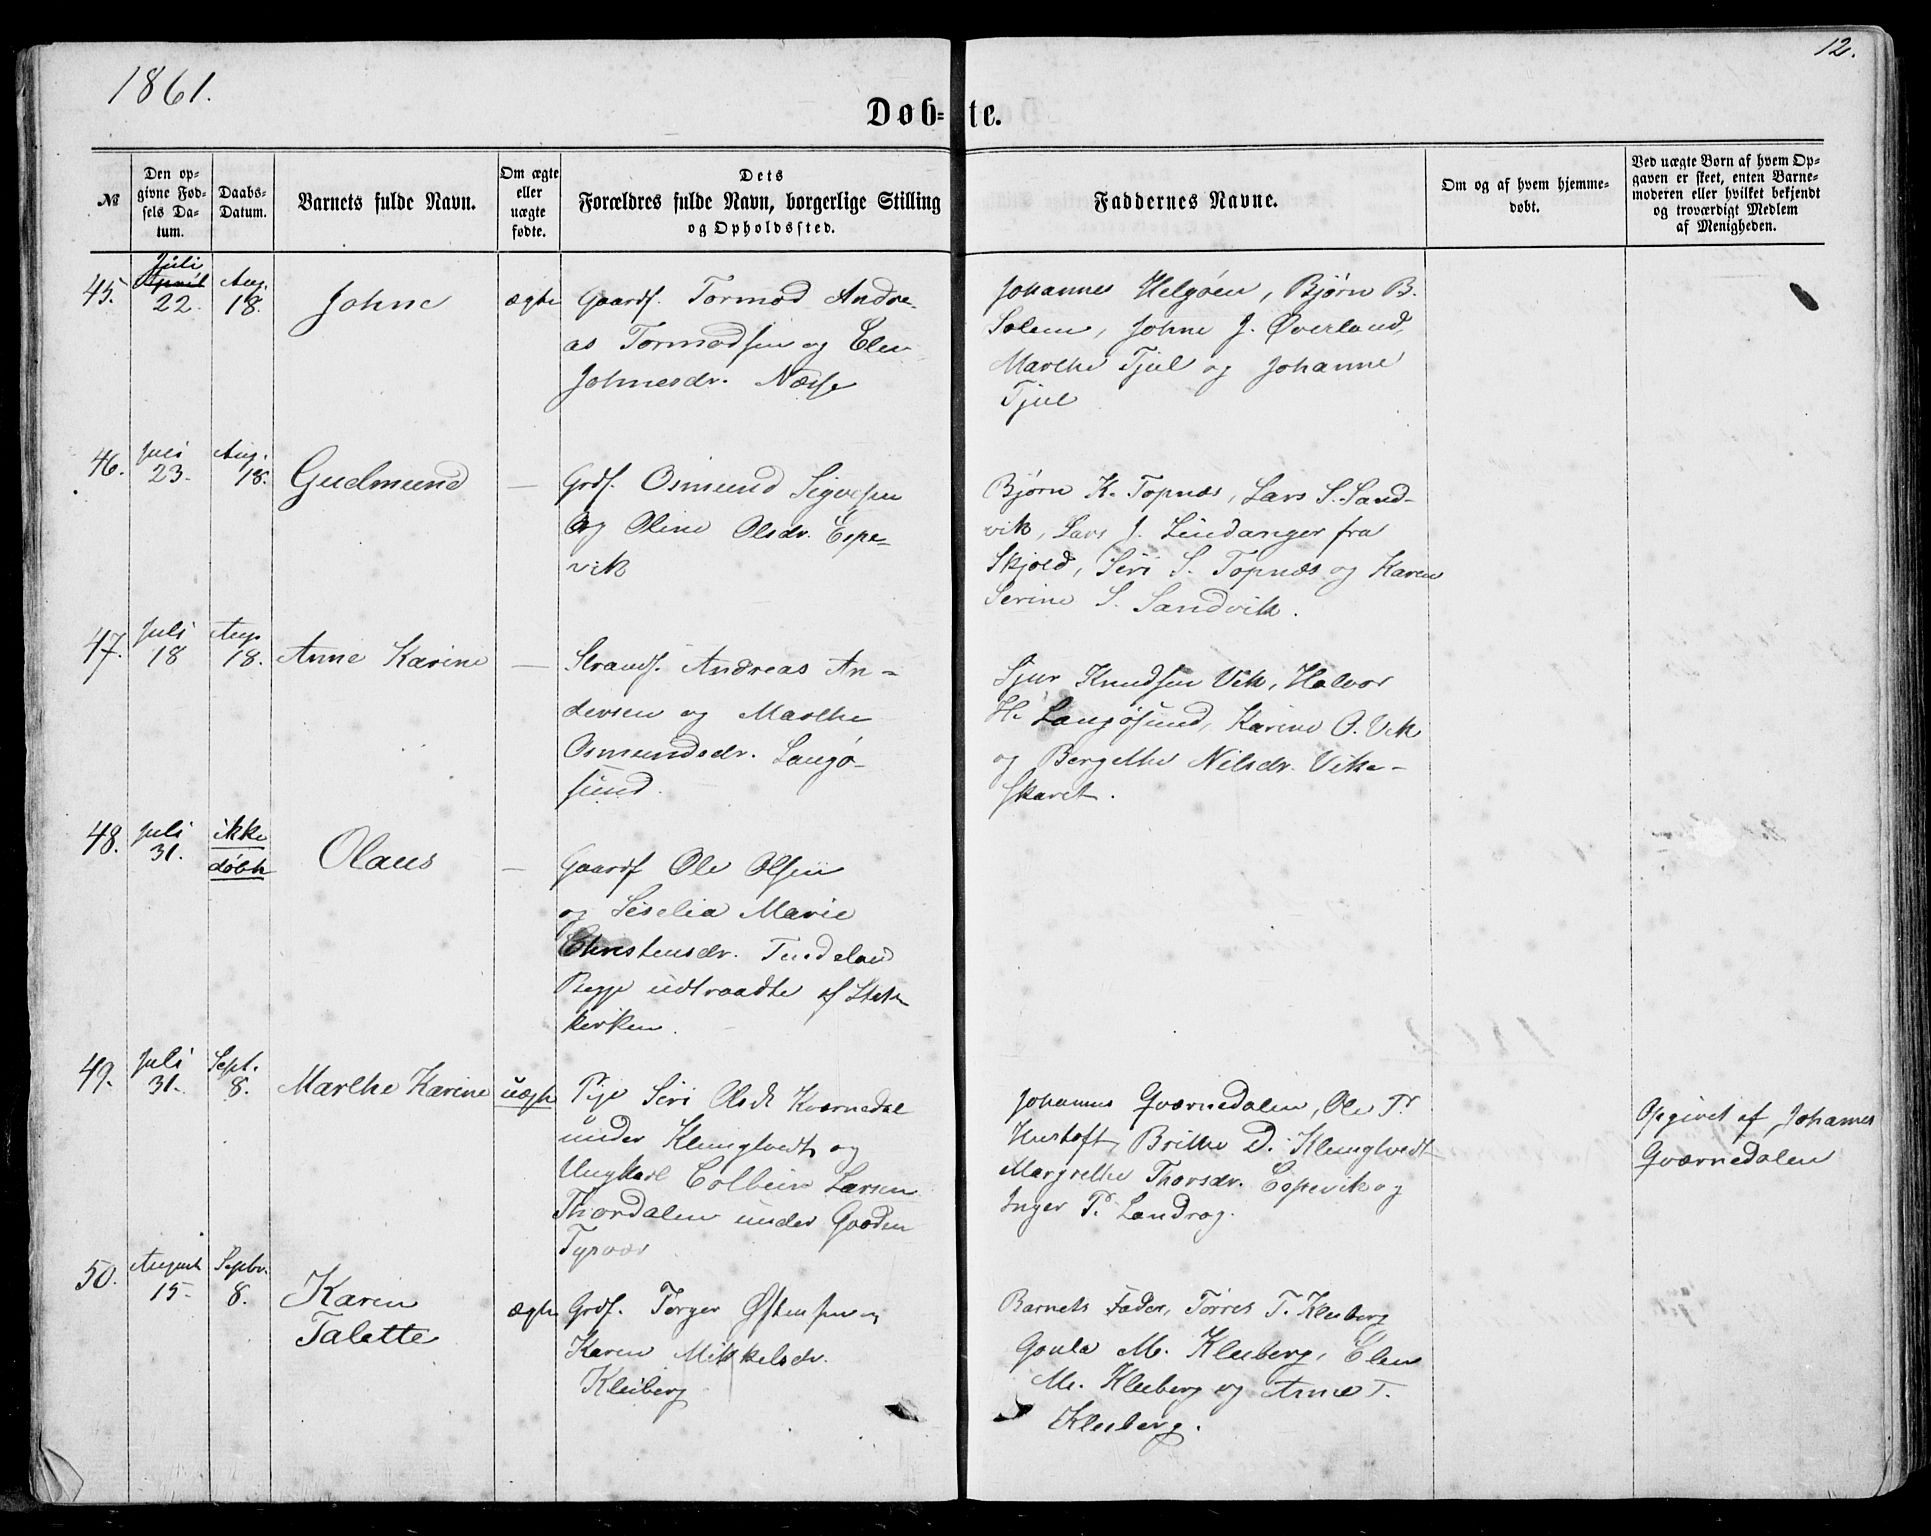 12.
1861.
Døb-te.
№
Den op-
givne Fød-
sels Da-
tum.
Daabs-
Datum.
Barnets fulde Navn.
Om ægte
eller
uægte
fødte.
Dets
Forældres fulde Navn, borgerlige Stilling
og Opholdssted.
Faddernes Navne.
Om og af hvem hjemme-
døbt.
Ved uægte Børn af hvem Op-
gaven er skeet, enten Barne-
moderen eller hvilket bekjendt
og troværdigt Medlem
af Menigheden.
45.
Juli
April
22.
Aug.
18.
Johne
ægte
Gaardf. Tormod Andre-
as Tormodsen og Elen
Johnesdr. Næsse
Johannes Helgøen, Bjørn B.
Solem, Johne J. Øverland,
Marthe Tjul og Johanne
Tjul
46.
Juli
23.
Aug.
18.
Gudmund
—
Grdf. Osmund Sigvesen
og Oline Olsdr. Espe-
vik
Bjørn K. Topnæs, Lars S. Sand-
vik, Lars J. Lindanger fra
Skjold, Siri S. Topnæs og Karen
Serine S. Sandvik.
47.
Juli
18
Aug.
18.
Anne Karine
—
Strands. Andreas An-
dersen og Marthe
Osmundsdr. Langø-
sund.
Sjur Knudsen Vik, Halvor
H. Langøsund, Karine O. Vik
og Bergethe Nilsdr. Vike-
skaret.
48.
Juli
31.
ikke
døbt
Olaus
—
Gaardf Ole Olsen
og Siselia Marie
Christensdr. Tindeland
Begge udtraadte af Stats
kirken.
49.
Juli
31.
Sept.
8.
Marthe Karine
uægte
Pige Siri Olsdt Kværnedal
under Klunglvedt og
Ungkarl Colbein Larsen
Thordalen under Gaarden
Tysvær
Johannes Qværnedalen, Ole T.
Hustoft, Brithe D. Klunglvedt
Margrethe Thorsdr. Espevik og
Inger P. Landrog.
Opgivet af Johannes
Qværnedalen
50.
August
15.
Sepbr.
8.
Karen
Talette
ægte
Grdf. Torger Østensen og
Karen Mikkelsdr.
Kleiberg
Barnets Fader, Tørres T. Kleiberg
Goula M. Kleiberg, Elen
M. Kleiberg og Anne T.
Kleiberg.